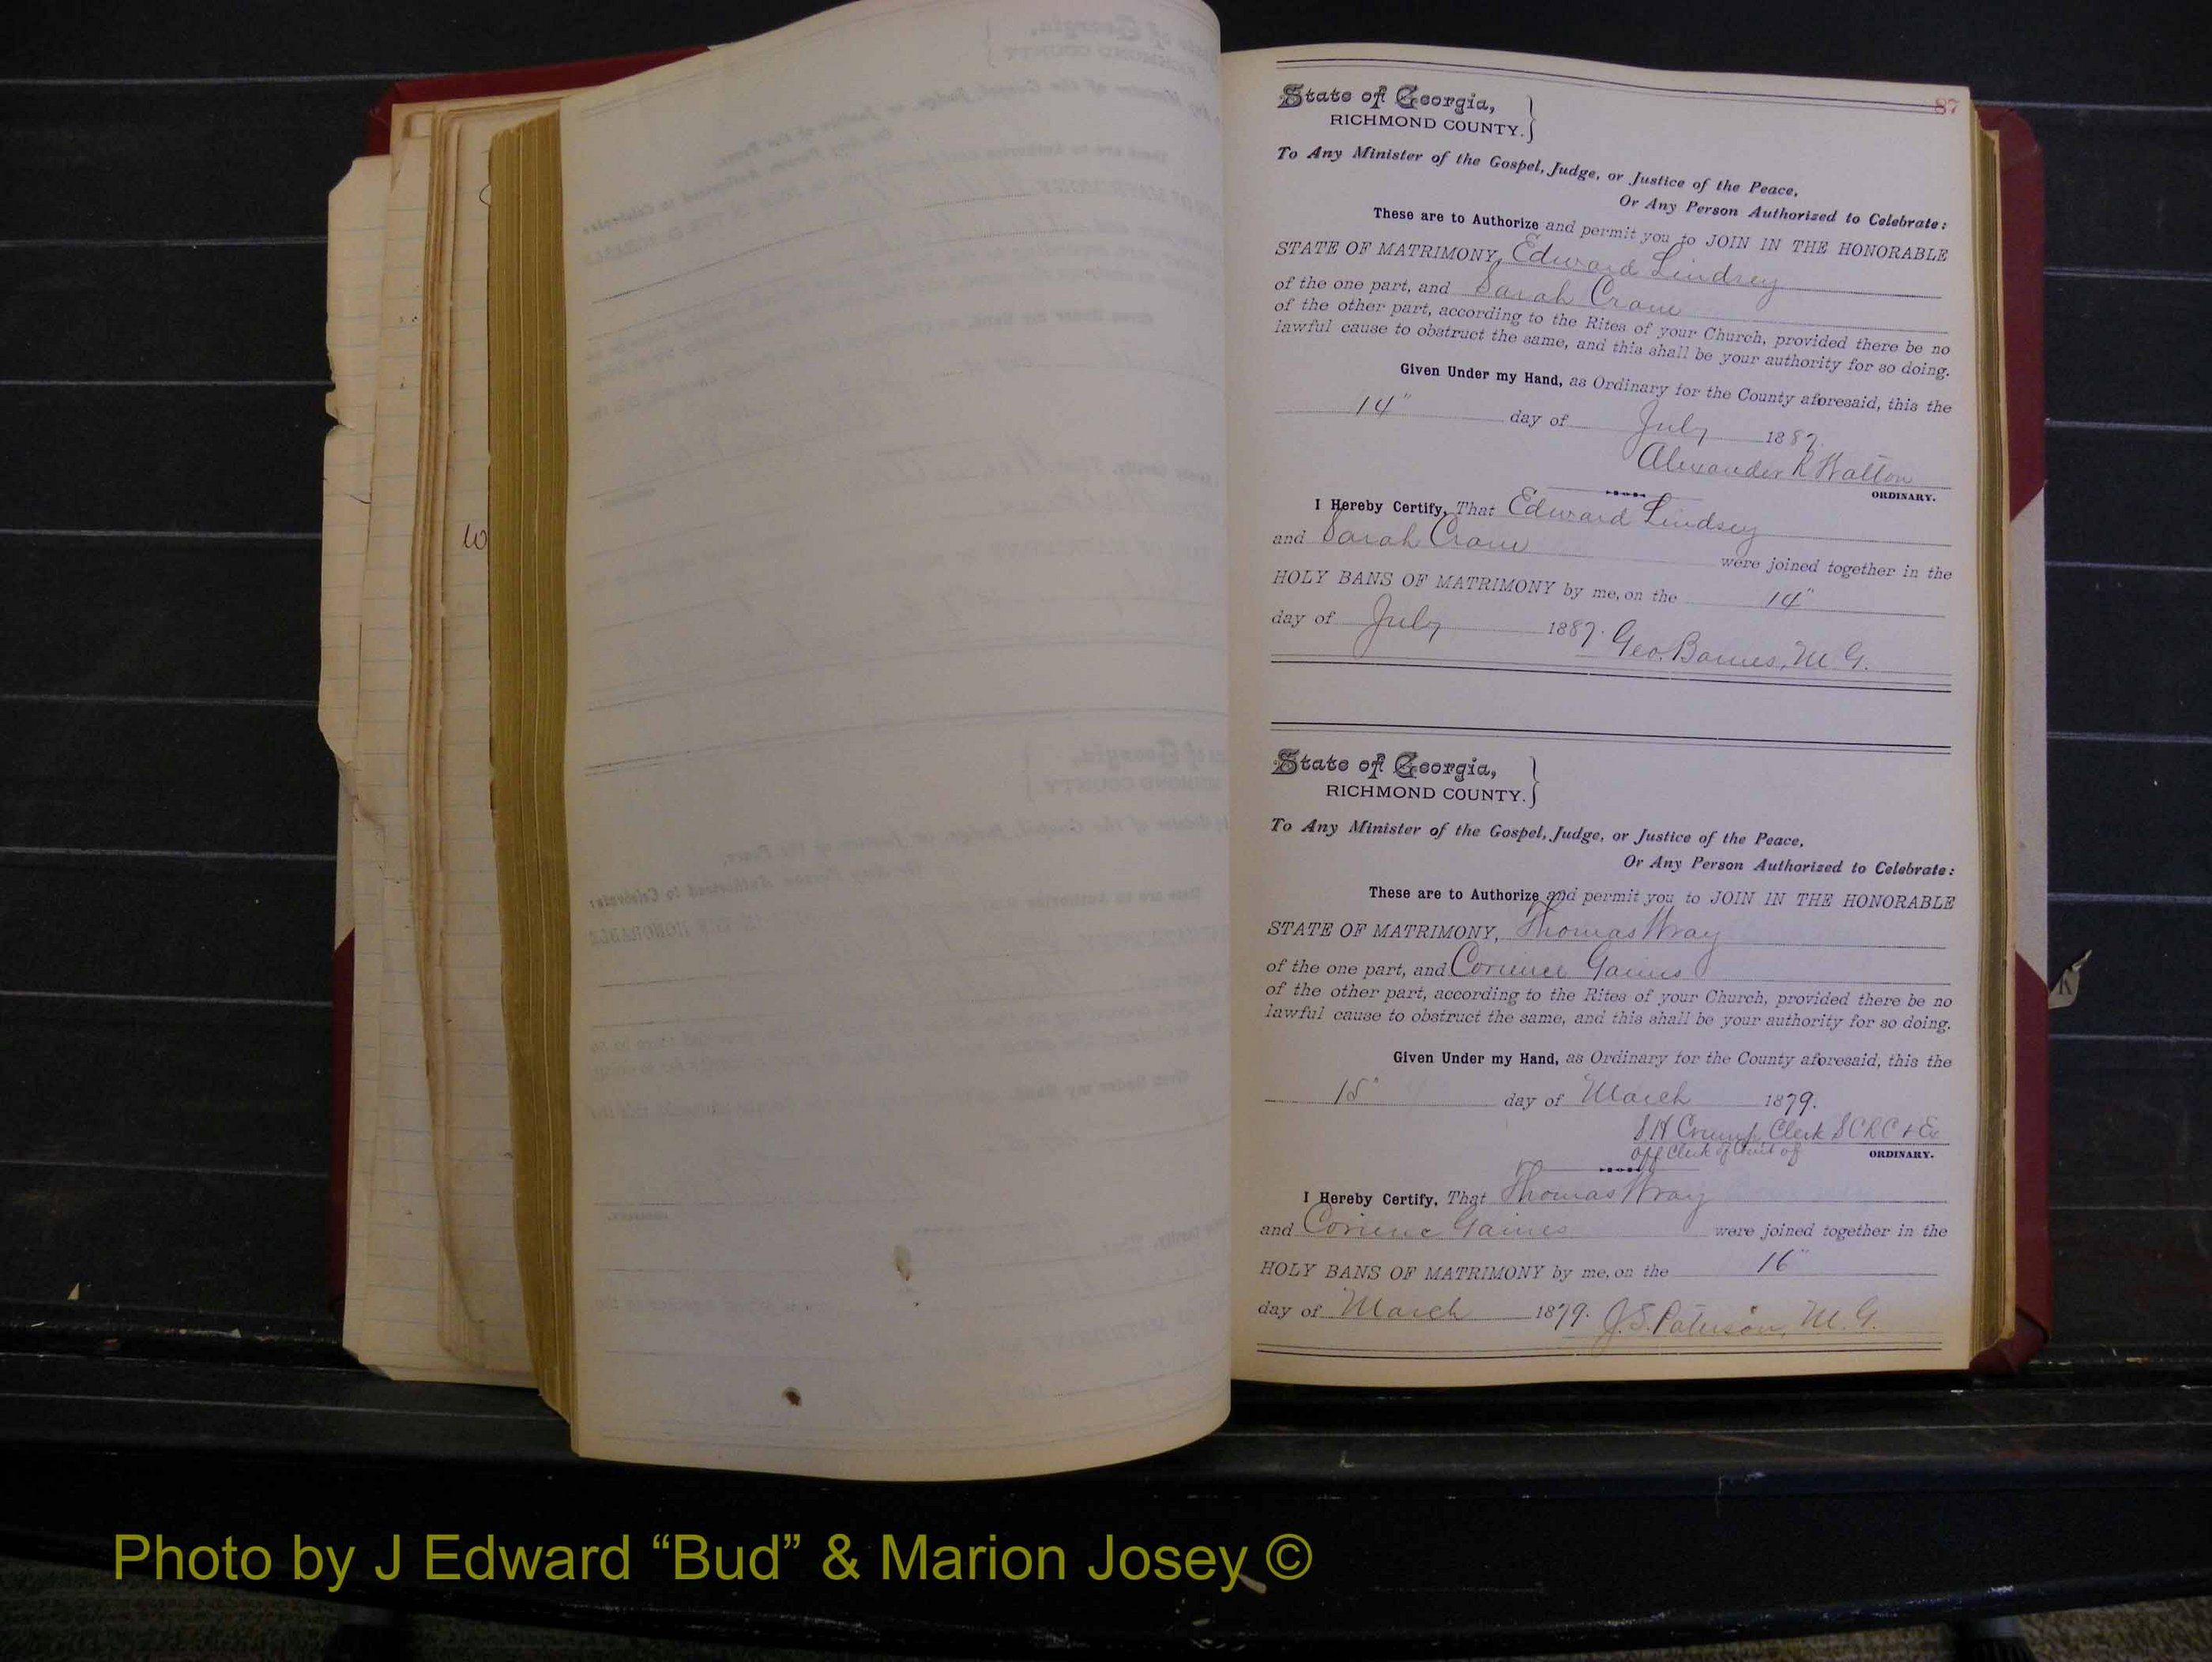 87
State of Georgia,
RICHMOND COUNTY.
To Any Minister of the Gospel, Judge, or Justice of the Peace,
Or Any Person Authorized to Celebrate:
These are to Authorize and permit you to JOIN IN THE HONORABLE
STATE OF MATRIMONY, Edward Lindsey
of the one part, and Sarah Crane
of the other part, according to the Rites of your Church, provided there be no
lawful cause to obstruct the same, and this shall be your authority for so doing.
Given Under my Hand, as Ordinary for the County aforesaid, this the
14" day of July 1887.
Alexander R Walton
ORDINARY.
I Hereby Certify, That Edward Lindsey
and Sarah Crane were joined together in the
HOLY BANS OF MATRIMONY by me, on the 14"
day of July 1887. Geo. Barnes, M. G.
State of Georgia,
RICHMOND COUNTY.
To Any Minister of the Gospel, Judge, or Justice of the Peace,
Or Any Person Authorized to Celebrate:
These are to Authorize and permit you to JOIN IN THE HONORABLE
STATE OF MATRIMONY, Thomas Wray
of the one part, and Corinne Gaines
of the other part, according to the Rites of your Church, provided there be no
lawful cause to obstruct the same, and this shall be your authority for so doing.
Given Under my Hand, as Ordinary for the County aforesaid, this the
15" day of March 1879.
S H Crump Clerk SCRC & Ex
off Clerk of Court of
ORDINARY.
I Hereby Certify, That Thomas Wray
and Corinne Gaines were joined together in the
HOLY BANS OF MATRIMONY by me, on the 16"
day of March 1879. J. S. Paterson, M. G.
K
Photo by J Edward “Bud” & Marion Josey ©